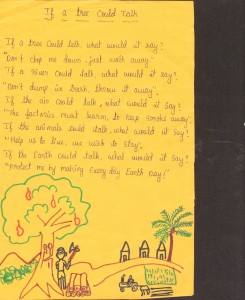 If a tree Could Talk
If a tree could talk, what would it say?
"Don't chop me down, just walk away."
If a river Could talk, what would it say?
"Don't dump in trash, throw it away."
If the air could talk, what would it say?
"The factories must learn, to keep smoke away."
If the animals could talk, what would it say?
"Help us to live, we wish to stay."
If the Earth could talk, what would it say?
"protect me by making Every day Earth Day!"